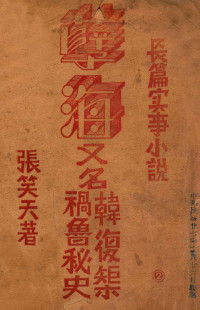 長篇实事小説
孽海
又名
韓復榘
禍魯秘史
張笑天著